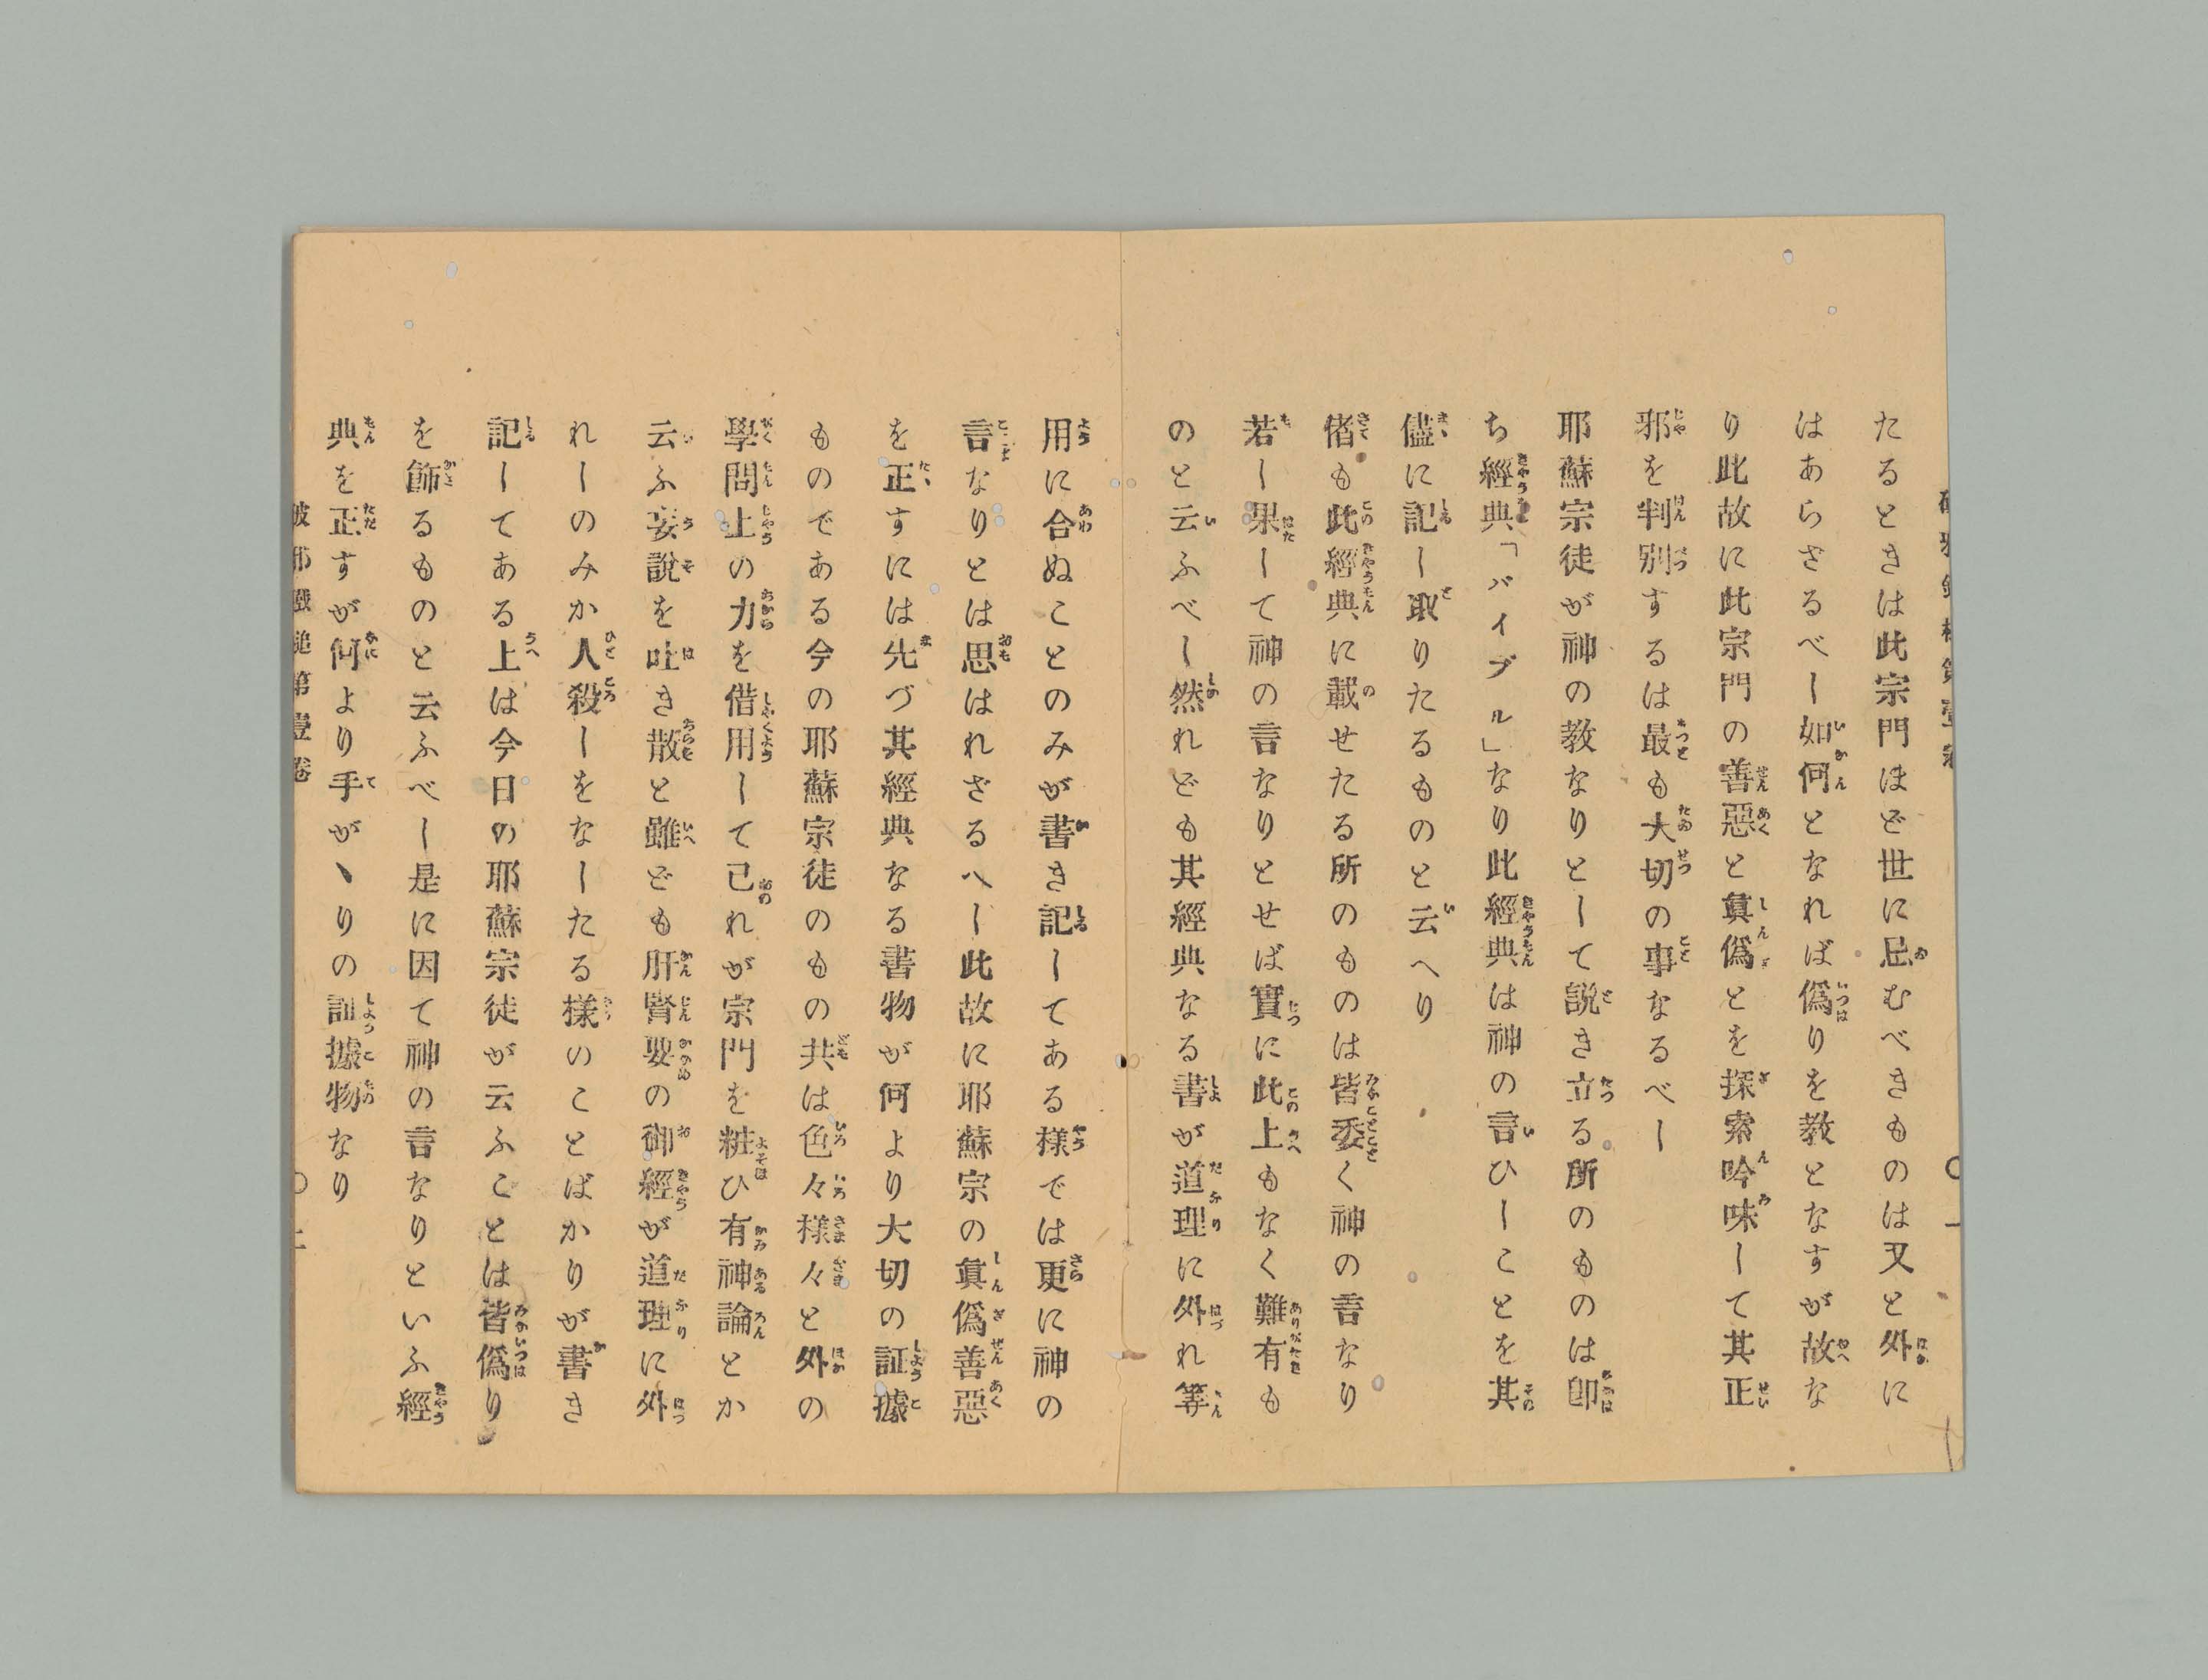 たるときは此宗門ほど世に忌むべきものは又と外に
はあらざるべし如何となれば僞りを教となすが故な
り此故に此宗門の善惡と眞僞とを探索吟味して其正
邪を判別するは最も大切の事なるべし
耶蘇宗徒が神の教なりとして説き立る所のものは卽
ち經典「バイブル」なり此經典は神の言ひしことを其
儘に記し取りたるものと云へり
偖も此經典に載せたる所のものは皆委く神の言なり
若し果して神の言なりとせば實に此上もなく難有も
のと云ふべし然れども其經典なる書が道理に外れ等
用に合ぬことのみが書き記してある樣では更に神の
言なりとは思はれざるへし此故に耶蘇宗の眞僞善惡
を正すには先づ其經典なる書物が何より大切の証據
ものである今の耶蘇宗徒のもの共は色々樣々と外の
學問上の力を借用して己れが宗門を粧ひ有神論とか
云ふ妄説を吐き散と雖ども肝腎要の御經が道理に外
れしのみか人殺しをなしたる樣のことばかりが書き
記してある上は今日の耶蘇宗徒が云ふことは皆僞り
を飾るものと云ふべし是に因て神の言なりといふ經
典を正すが何より手がゝりの証據物なり
第壹卷